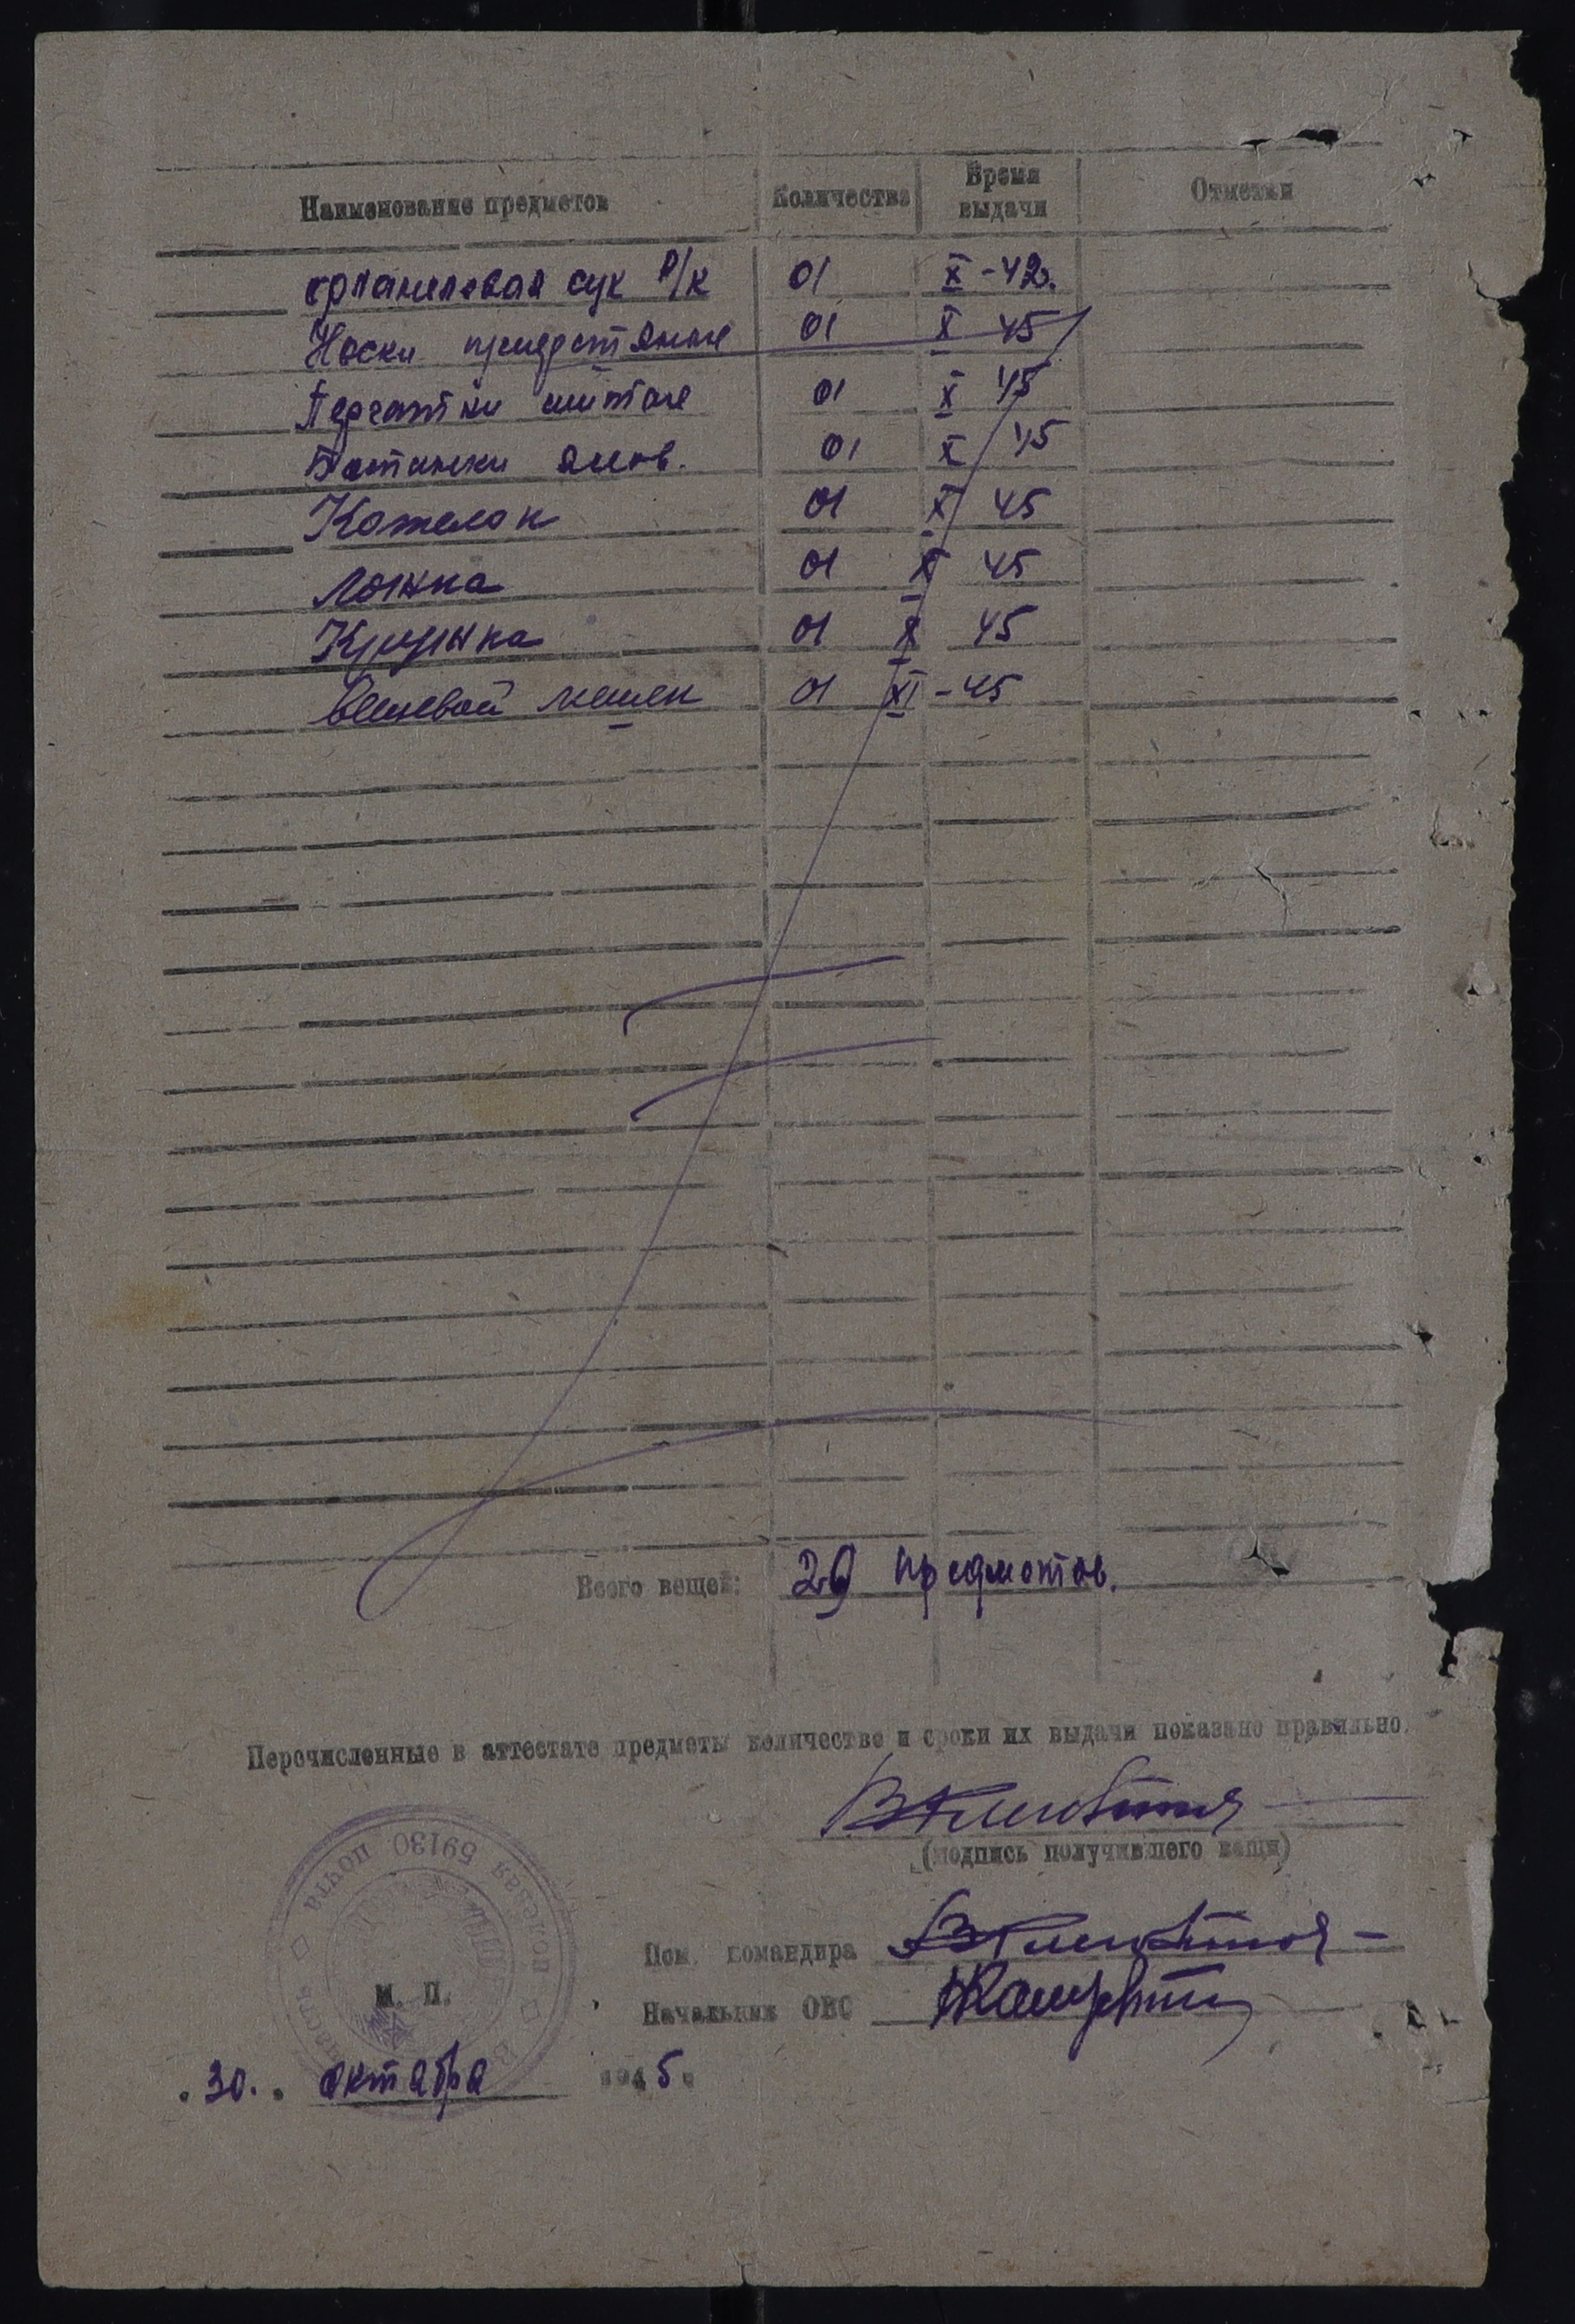 Наименование предметов Количество Время выдачи Отметки
фланелевая сук Р/К 01 X-42г.
Носки шерстяные 01 X 45
Перчатки шитые 01 X 45
Ботинки 01 X 45
Котелок 01 X 45
Ложка 01 X 45
Кружка 01 X 45
Вещевой мешок 01 XI-45
Всего вещей: предметов.
Перечисленные в аттестате предметы количество и сроки их выдачи показано правильно.
(подпись получившего вещи)
Пом. командира
Начальник ОВС
полевая почта 59130
М. П.
.30. октября 1945г